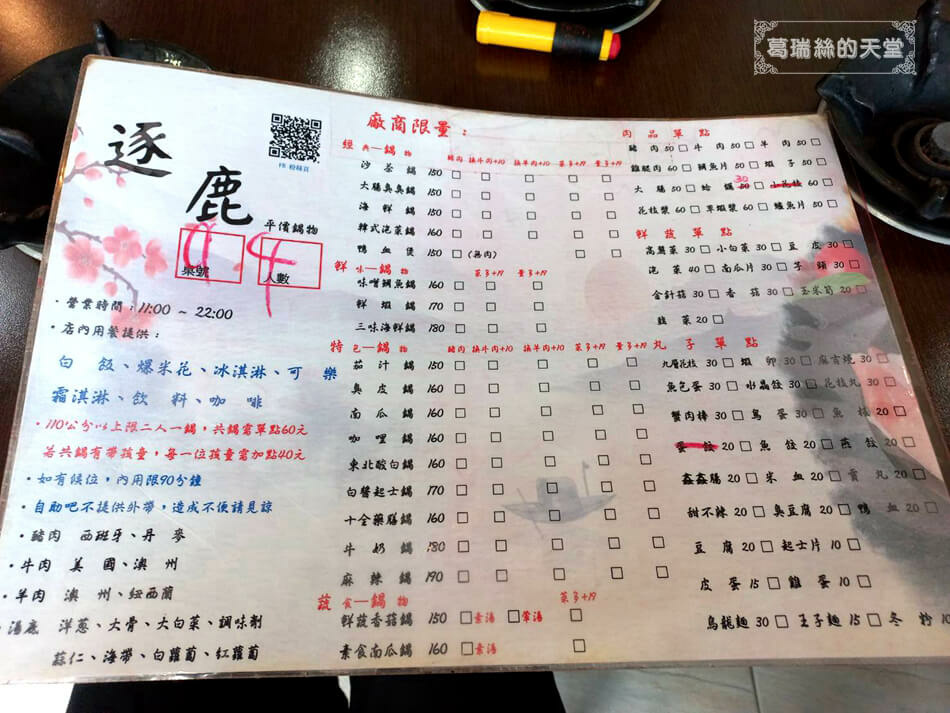 葛瑞絲的天堂
逐
鹿
FB 粉絲頁
平價鍋物
桌號 9
人數 4
・營業時間：11:00 ~ 22:00
・店內用餐提供：
白 飯、爆米花、冰淇淋、可 樂
霜淇淋、飲 料、咖 啡
・110公分以上限二人一鍋，共鍋需單點60元
若共鍋有帶孩童，每一位孩童需加點40元
・如有候位，內用限90分鐘
・自助吧不提供外帶，造成不便請見諒
・豬肉 西班牙、丹 麥
・牛肉 美 國、澳 州
・羊肉 澳 州、紐西蘭
・湯底 洋蔥、大骨、大白菜、調味劑
蒜仁、海帶、白蘿蔔、紅蘿蔔
廠商限量：
經典一鍋物 豬肉 換牛肉+10 換羊肉+10 菜多+19 量多+19
沙茶鍋 150 □ □ □ □ □
大腸臭臭鍋 150 □ □ □ □ □
海鮮鍋 150 □ □ □ □ □
韓式泡菜鍋 150 □ □ □ □ □
鴨血煲 150 □ (無肉) □ □
鮮味一鍋物 菜多+19 量多+19
味噌鯛魚鍋 160 □ □ □
鮮蝦鍋 170 □ □ □
三味海鮮鍋 180 □ □ □
特色一鍋物 豬肉 換牛肉+10 換羊肉+10 菜多+19 量多+19
茄汁鍋 150 □ □ □ □ □
臭皮鍋 160 □ □ □ □ □
南瓜鍋 160 □ □ □ □ □
咖哩鍋 160 □ □ □ □ □
東北酸白鍋 160 □ □ □ □ □
白醬起士鍋 170 □ □ □ □ □
十全藥膳鍋 160 □ □ □ □ □
牛奶鍋 180 □ □ □ □ □
麻辣鍋 190 □ □ □ □ □
蔬食一鍋物 菜多+19
鮮蔬香菇鍋 150 □素湯 □葷湯 □
素食南瓜鍋 160 □素湯 □
肉品單點
豬肉 50 □ 牛肉 50 □ 羊肉 50 □
雞腿肉 60 □ 鯛魚片 50 □ 蝦子 50 □
大腸 50 □ 蛤蠣 50 30 □ 小花枝 60 □
花枝漿 60 □ 草蝦漿 60 □ 鱸魚片 50 □
鮮蔬單點
高麗菜 30 □ 小白菜 30 □ 豆皮 50 □
泡菜 40 □ 南瓜片 30 □ 芋頭 30 □
金針菇 30 □ 香菇 30 □ 玉米筍 20 □
韮菜 20 □
丸子單點
九層花枝 30 □ 蝦卵 30 □ 麻吉燒 30 □
魚包蛋 30 □ 水晶餃 30 □ 花枝丸 30 □
蟹肉棒 30 □ 鳥蛋 30 □ 魚板 20 □
蛋餃 20 □ 魚餃 20 □ 燕餃 20 □
鑫鑫腸 20 □ 米血 20 □ 貢丸 20 □
甜不辣 20 □ 臭豆腐 20 □ 鴨血 20 □
豆腐 20 □ 起士片 10 □
皮蛋 15 □ 雞蛋 10 □
烏龍麵 30 □ 王子麵 15 □ 冬粉 10